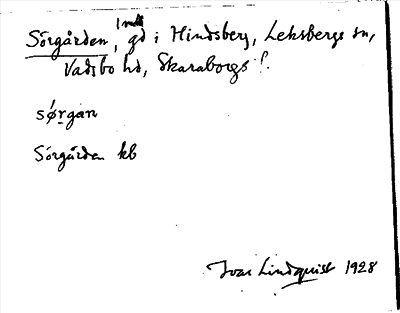 Sörgården, gd i Hindsberg, Leksbergs sn,
Vadsbo hd, Skaraborgs l.
sǿrgan
Sörgården kb
Ivar Lindquist 1928